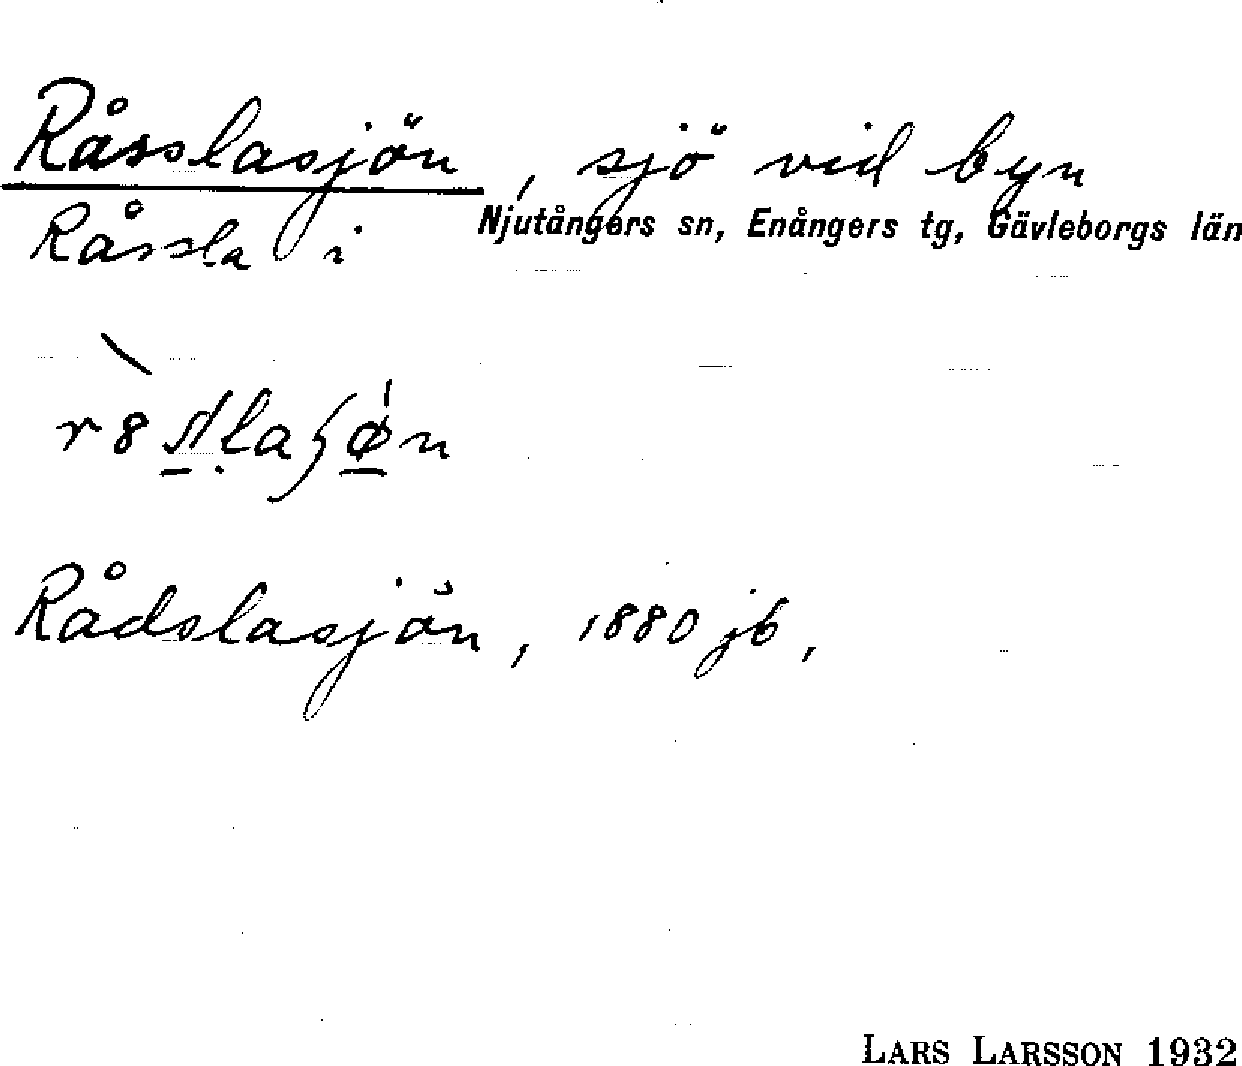 Råsslasjön, sjö vid byn
Råssla i Njutångers sn, Enångers tg, Gävleborgs län
Rådslasjön, 1880 jb,
LARS LARSSON 1932